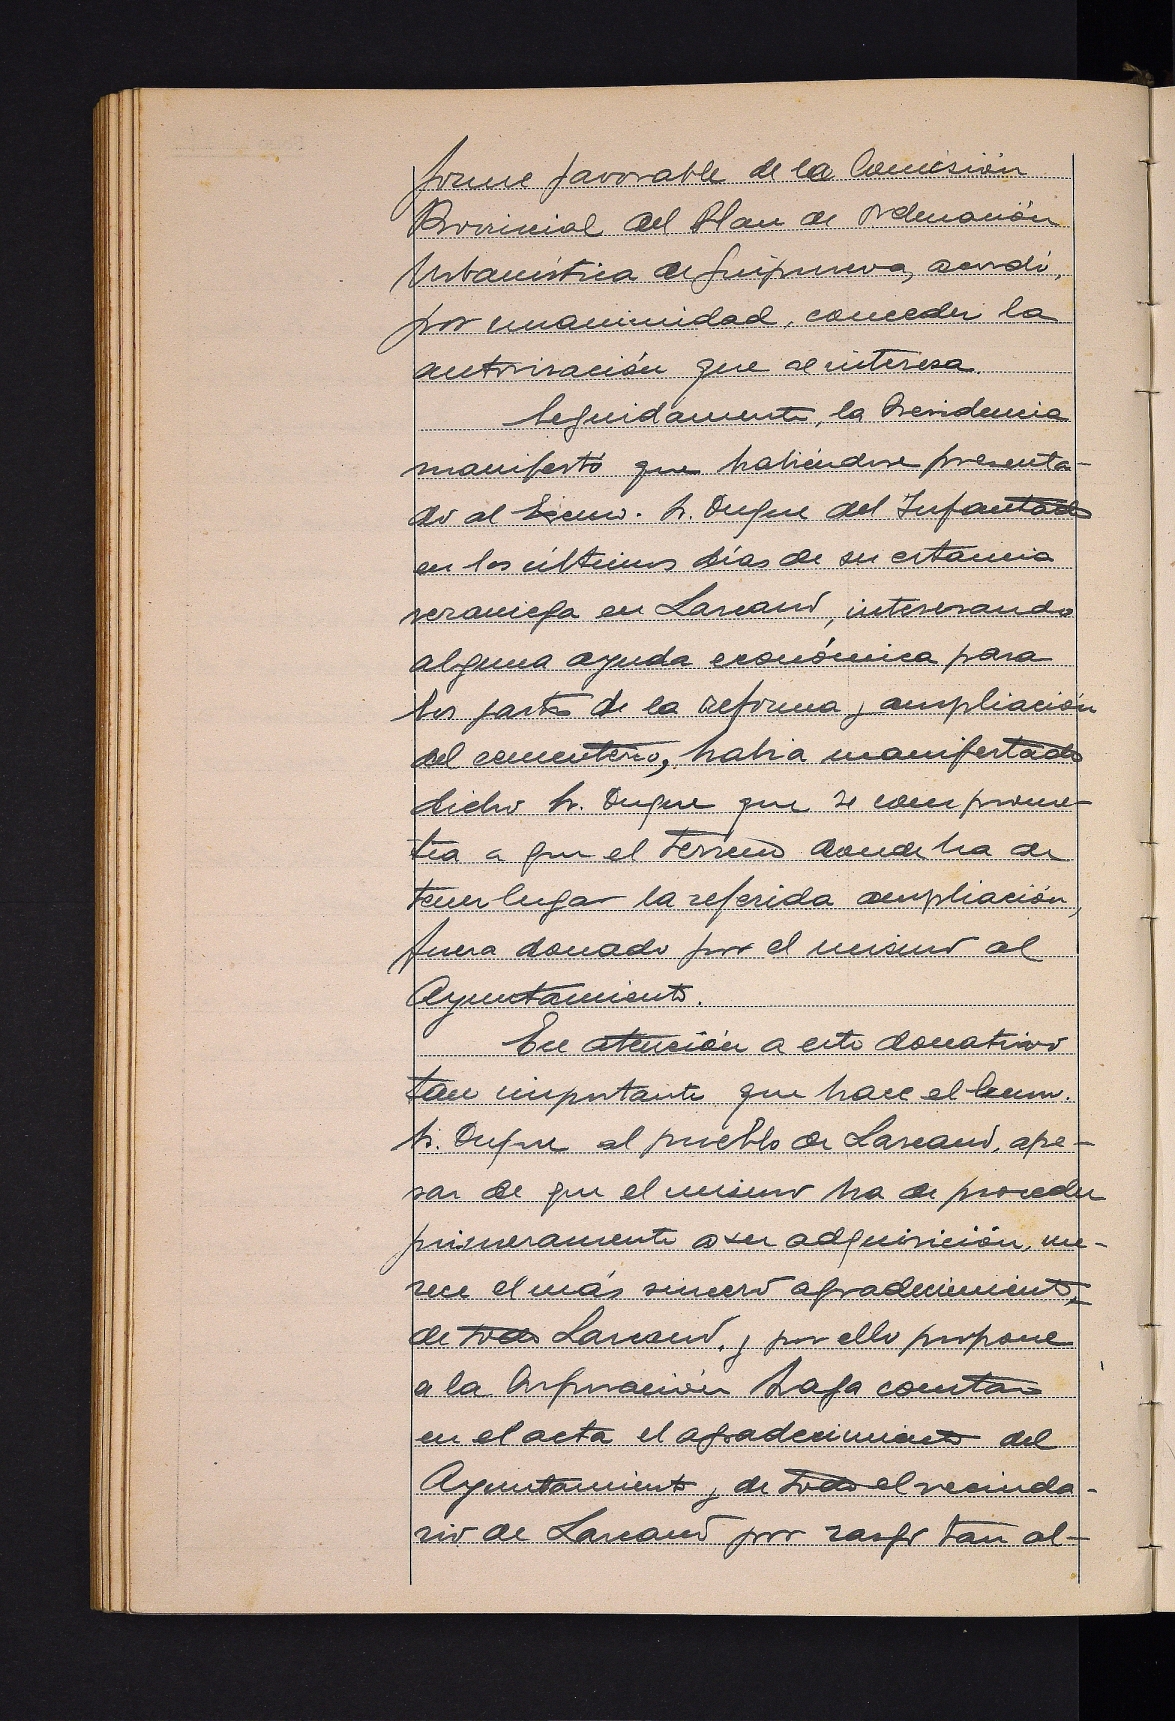 forme favorable de la Comisión
Provincial del Plan de Ordenación
Urbanística de Guipuzcoa, acordó,
por unanimidad, conceder la
autorización que se interesa.
Seguidamente, la Presidencia
manifestó que habiéndose presenta-
do al Excmo. Sr. Duque del Infantado
en los últimos días de su estancia
veraniega en Lazcano, interesando
alguna ayuda económica para
los gastos de la reforma y ampliación
del cementerio, habia manifestado
dicho Sr. Duque que se comprome-
tia a que el terreno donde ha de
tener lugar la referida ampliación,
fuera donado por el mismo al
Ayuntamiento.
En atención a este donativo
tan importante que hace el Excmo.
Sr. Duque al pueblo de Lazcano, ape-
sar de que el mismo ha de proceder
primeramente a su adquisición, me-
rece el más sincero agradecimiento
de todo Lazcano, y por ello propone
a la Corporación haga constar
en el acta el agradecimiento del
Ayuntamiento y de todo el vecinda-
rio de Lazcano por rasgo tan al-